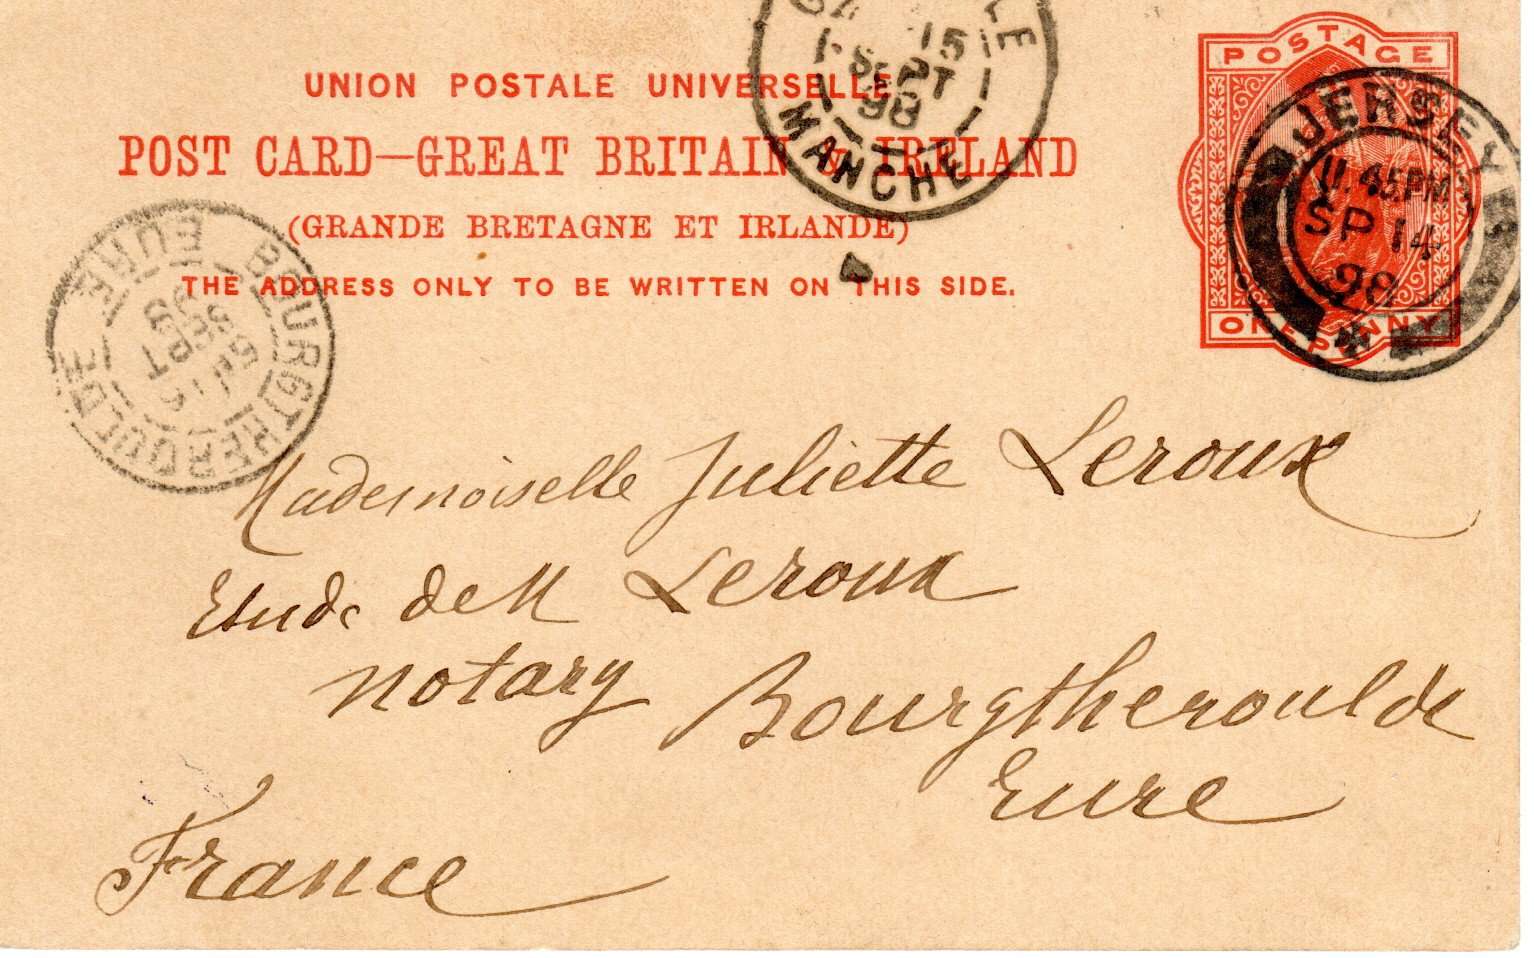 UNION POSTALE UNIVERSELLE
POST CARD—GREAT BRITAIN & IRELAND
(GRANDE BRETAGNE ET IRLANDE)
THE ADDRESS ONLY TO BE WRITTEN ON THIS SIDE.
15
SEPT
98
MANCHE
POSTAGE
ONE PENNY
JERSEY
11.45PM
SP 14
98
BOURGTHEROULDE
EURE
16
SEPT
98
Mademoiselle Juliette Leroux
Etude de M Leroux
notary Bourgtheroulde
Eure
France